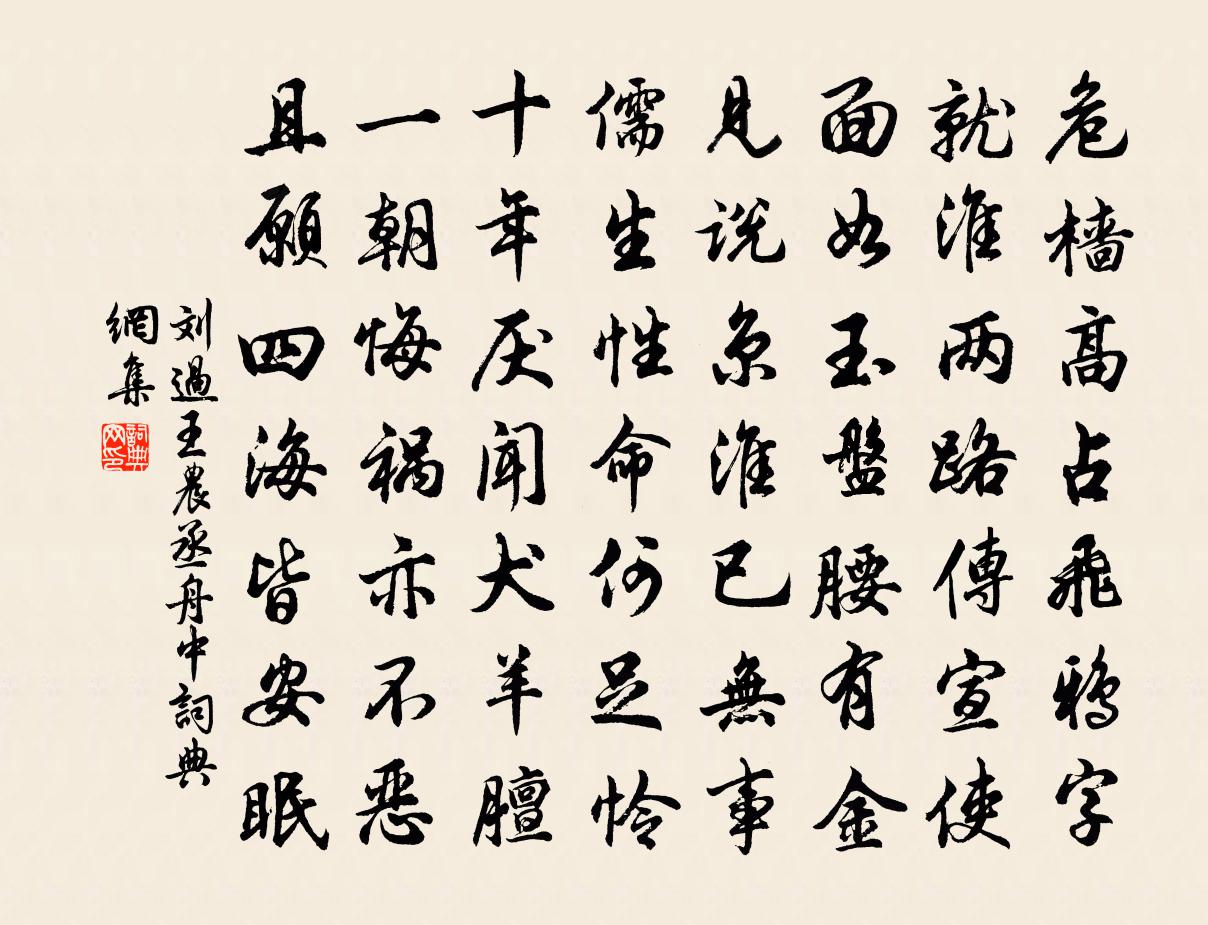 危樯高占飛鴉字
就淮两路傳宣使
面如玉盤腰有金
見说京淮已無事
儒生性命何足怜
十年厌闻犬羊膻
一朝悔祸亦不恶
且願四海皆安眠
刘過王農丞舟中詞典
網集
詞典
网印